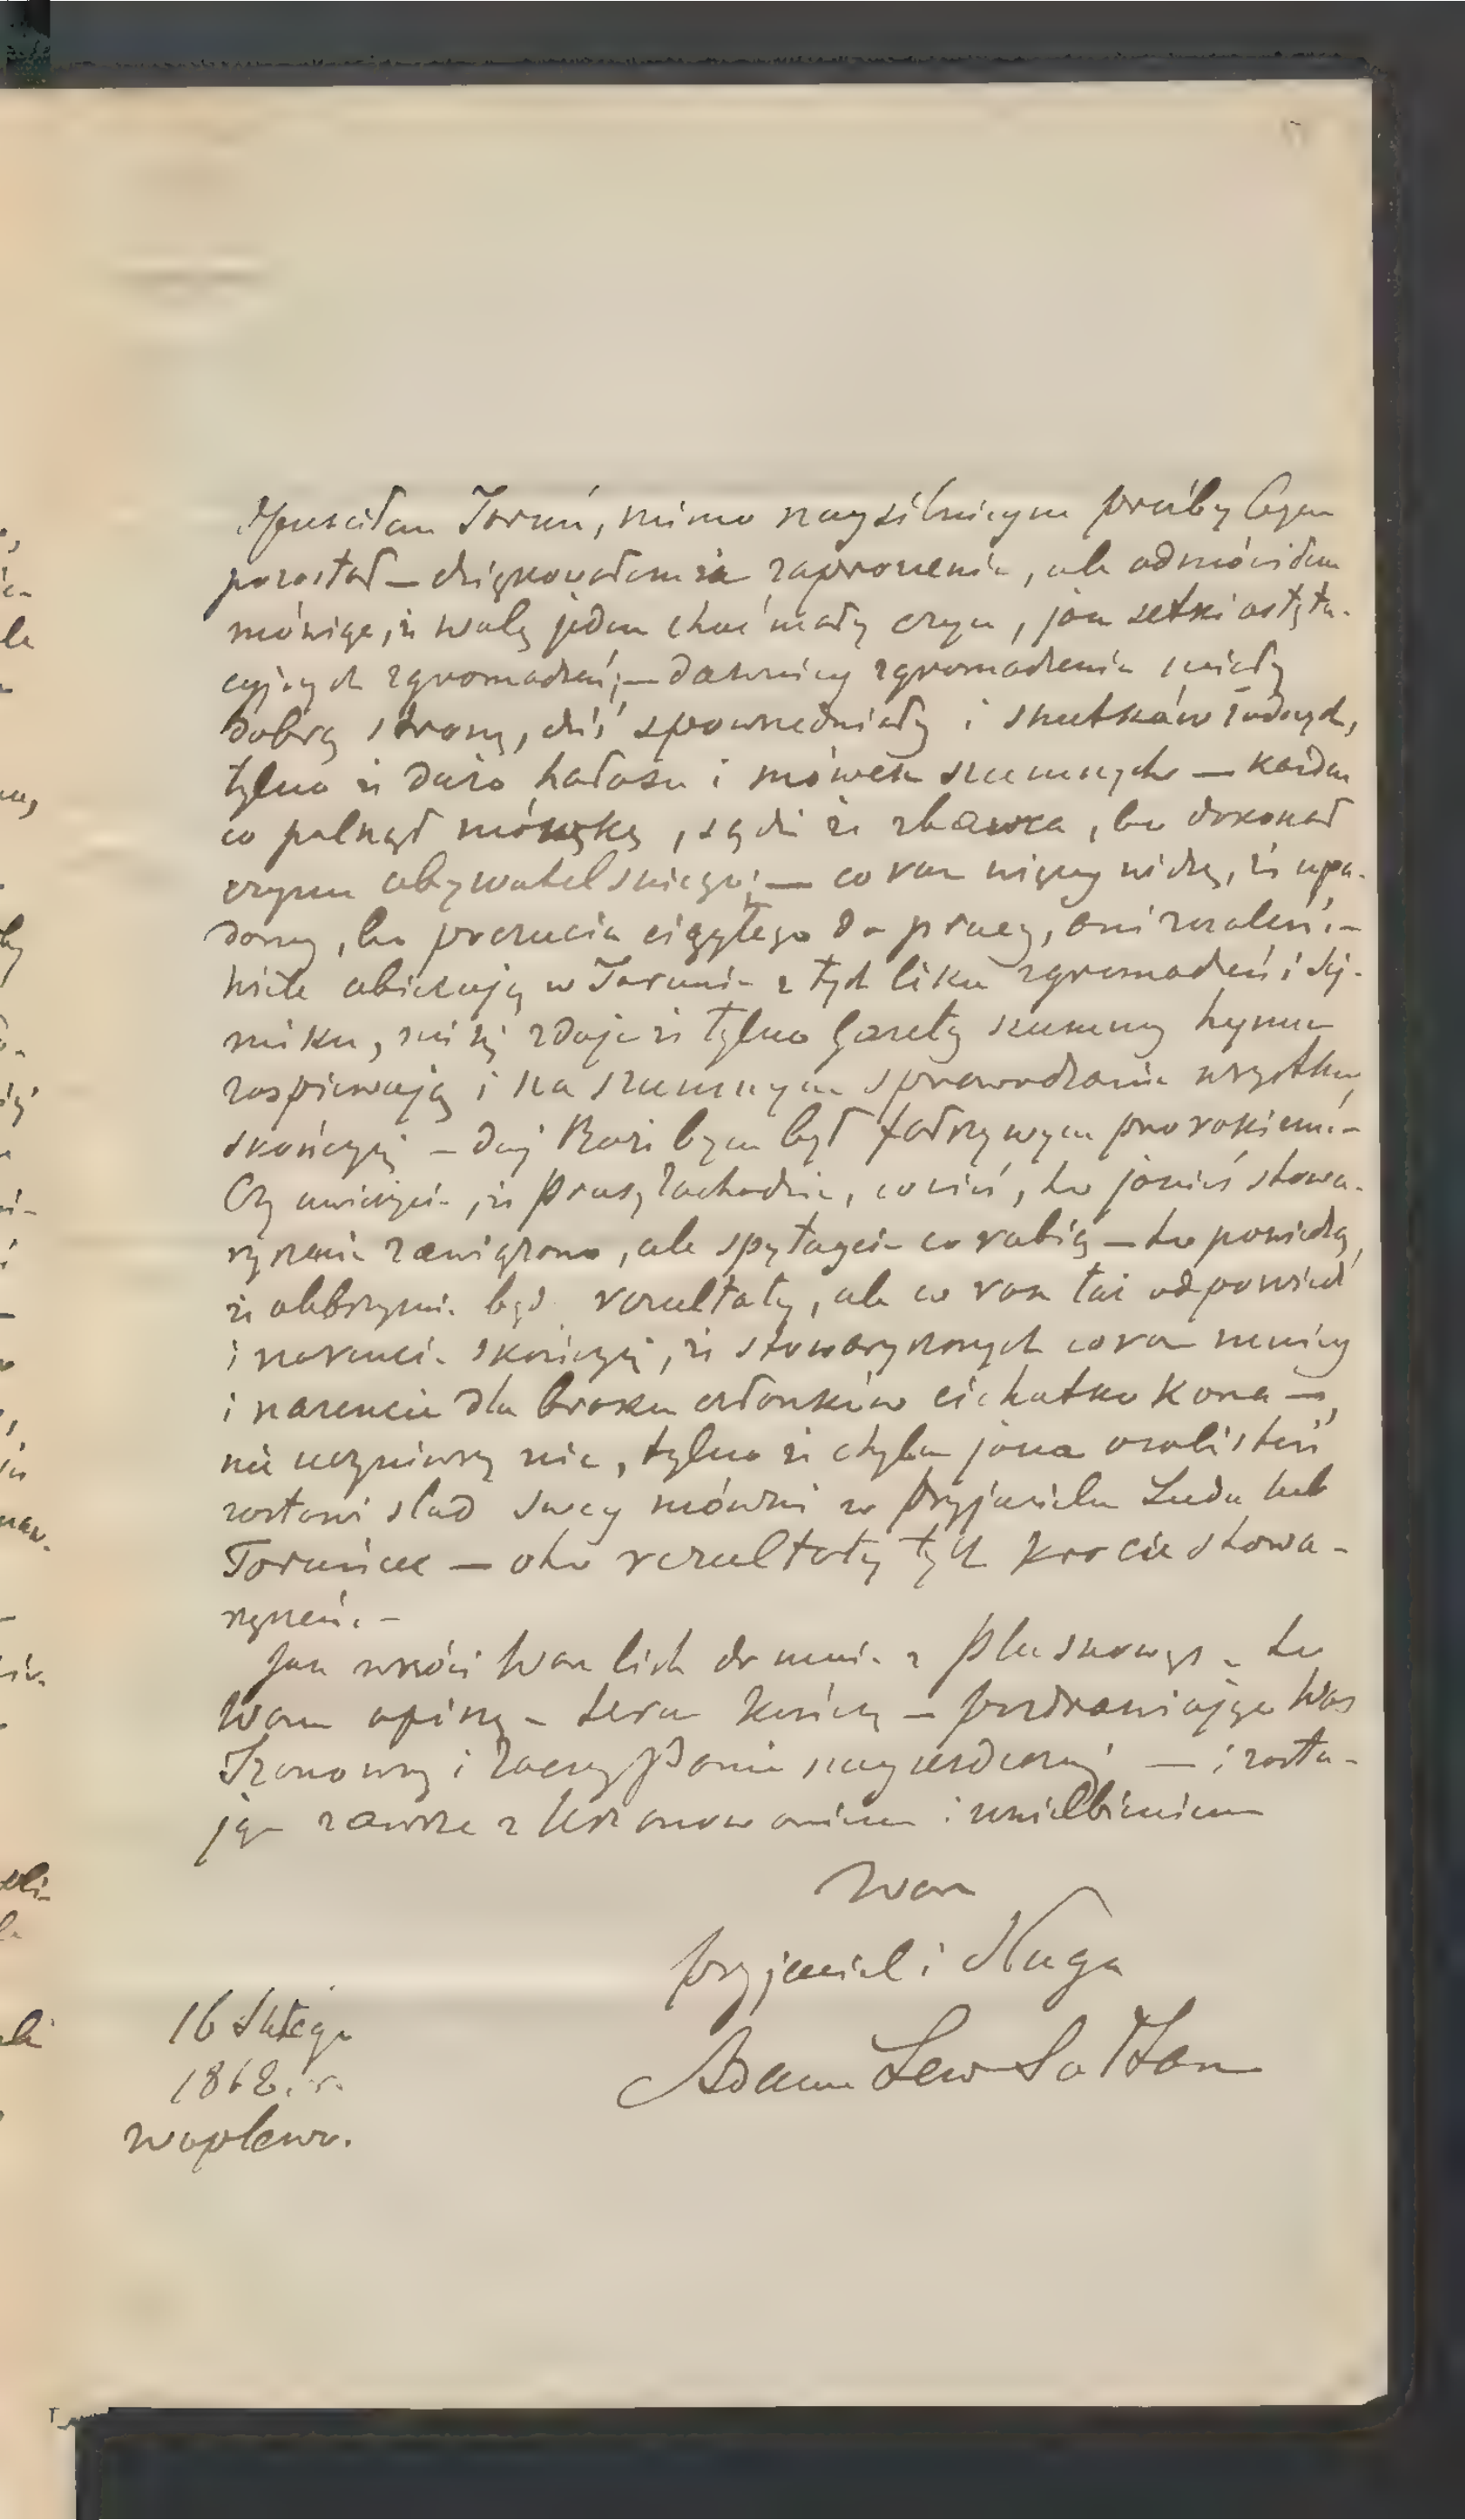 Opuściłem Toruń, mimo naysilnieyszej proźby bym
pozostał — dziękowałem za zaproszenie, ale odmówiłem
mówiąc, iż wolę jeden choć mały czyn, jak setki
zgromadzeń; — dawniey zgromadzenia miały
dobrą stronę, dziś spowszedniały i skutków żadnych,
tylko iż dużo hałasu i mówek szumnych — każden
co palnął mówkę, sądzi że zbawca, bo dokonał
czynu obywatelskiego; — co raz więcey widzę, iż upa-
domy, bo poczucia ciągłego do pracy, ani znaleść. —
Wiele obiecują w Toruniu z tych liku zgromadzeń i Sej-
miku, mi się zdaje iż tylko Gazety szumny hymn
zaspiewają i na szumnym sprawozdaniu wszystko
skończy się — Day Boże bym był fałszywym prorokiem. —
Czy uwierzycie, iż Prusy Zachodnie, co wieś, to jakieś stowa-
rzyszenie zawiązano, ale spytaycie co robią — to powiedzą,
iż olbrzymie będą rezultaty, ale co raz taż odpowiedź
i nareszcie skończy się, iż stowarzyszonych coraz mniey
i nareszcie dla braku członków cichutko kona —,
nie uczyniwszy nic, tylko iż chyba jaka
zostawi slad swey mówki w Przyjacielu Ludu lub
Toruńce — oto rezultaty tych krocie stowa-
rzyszeń. —
Jak wróci Wasz list do mnie z Pluskowęs — to
Wam opiszę — teraz kończę — pozdrawiając Was
Szanowny i Zacny Panie nayserdeczniey — i zosta-
jąc zawsze z Uszanowaniem i uwielbieniem
Wasz
przyjaciel i sługa
Adam Lew Sołtan
16 Lutego
1868. r.
Waplewo.